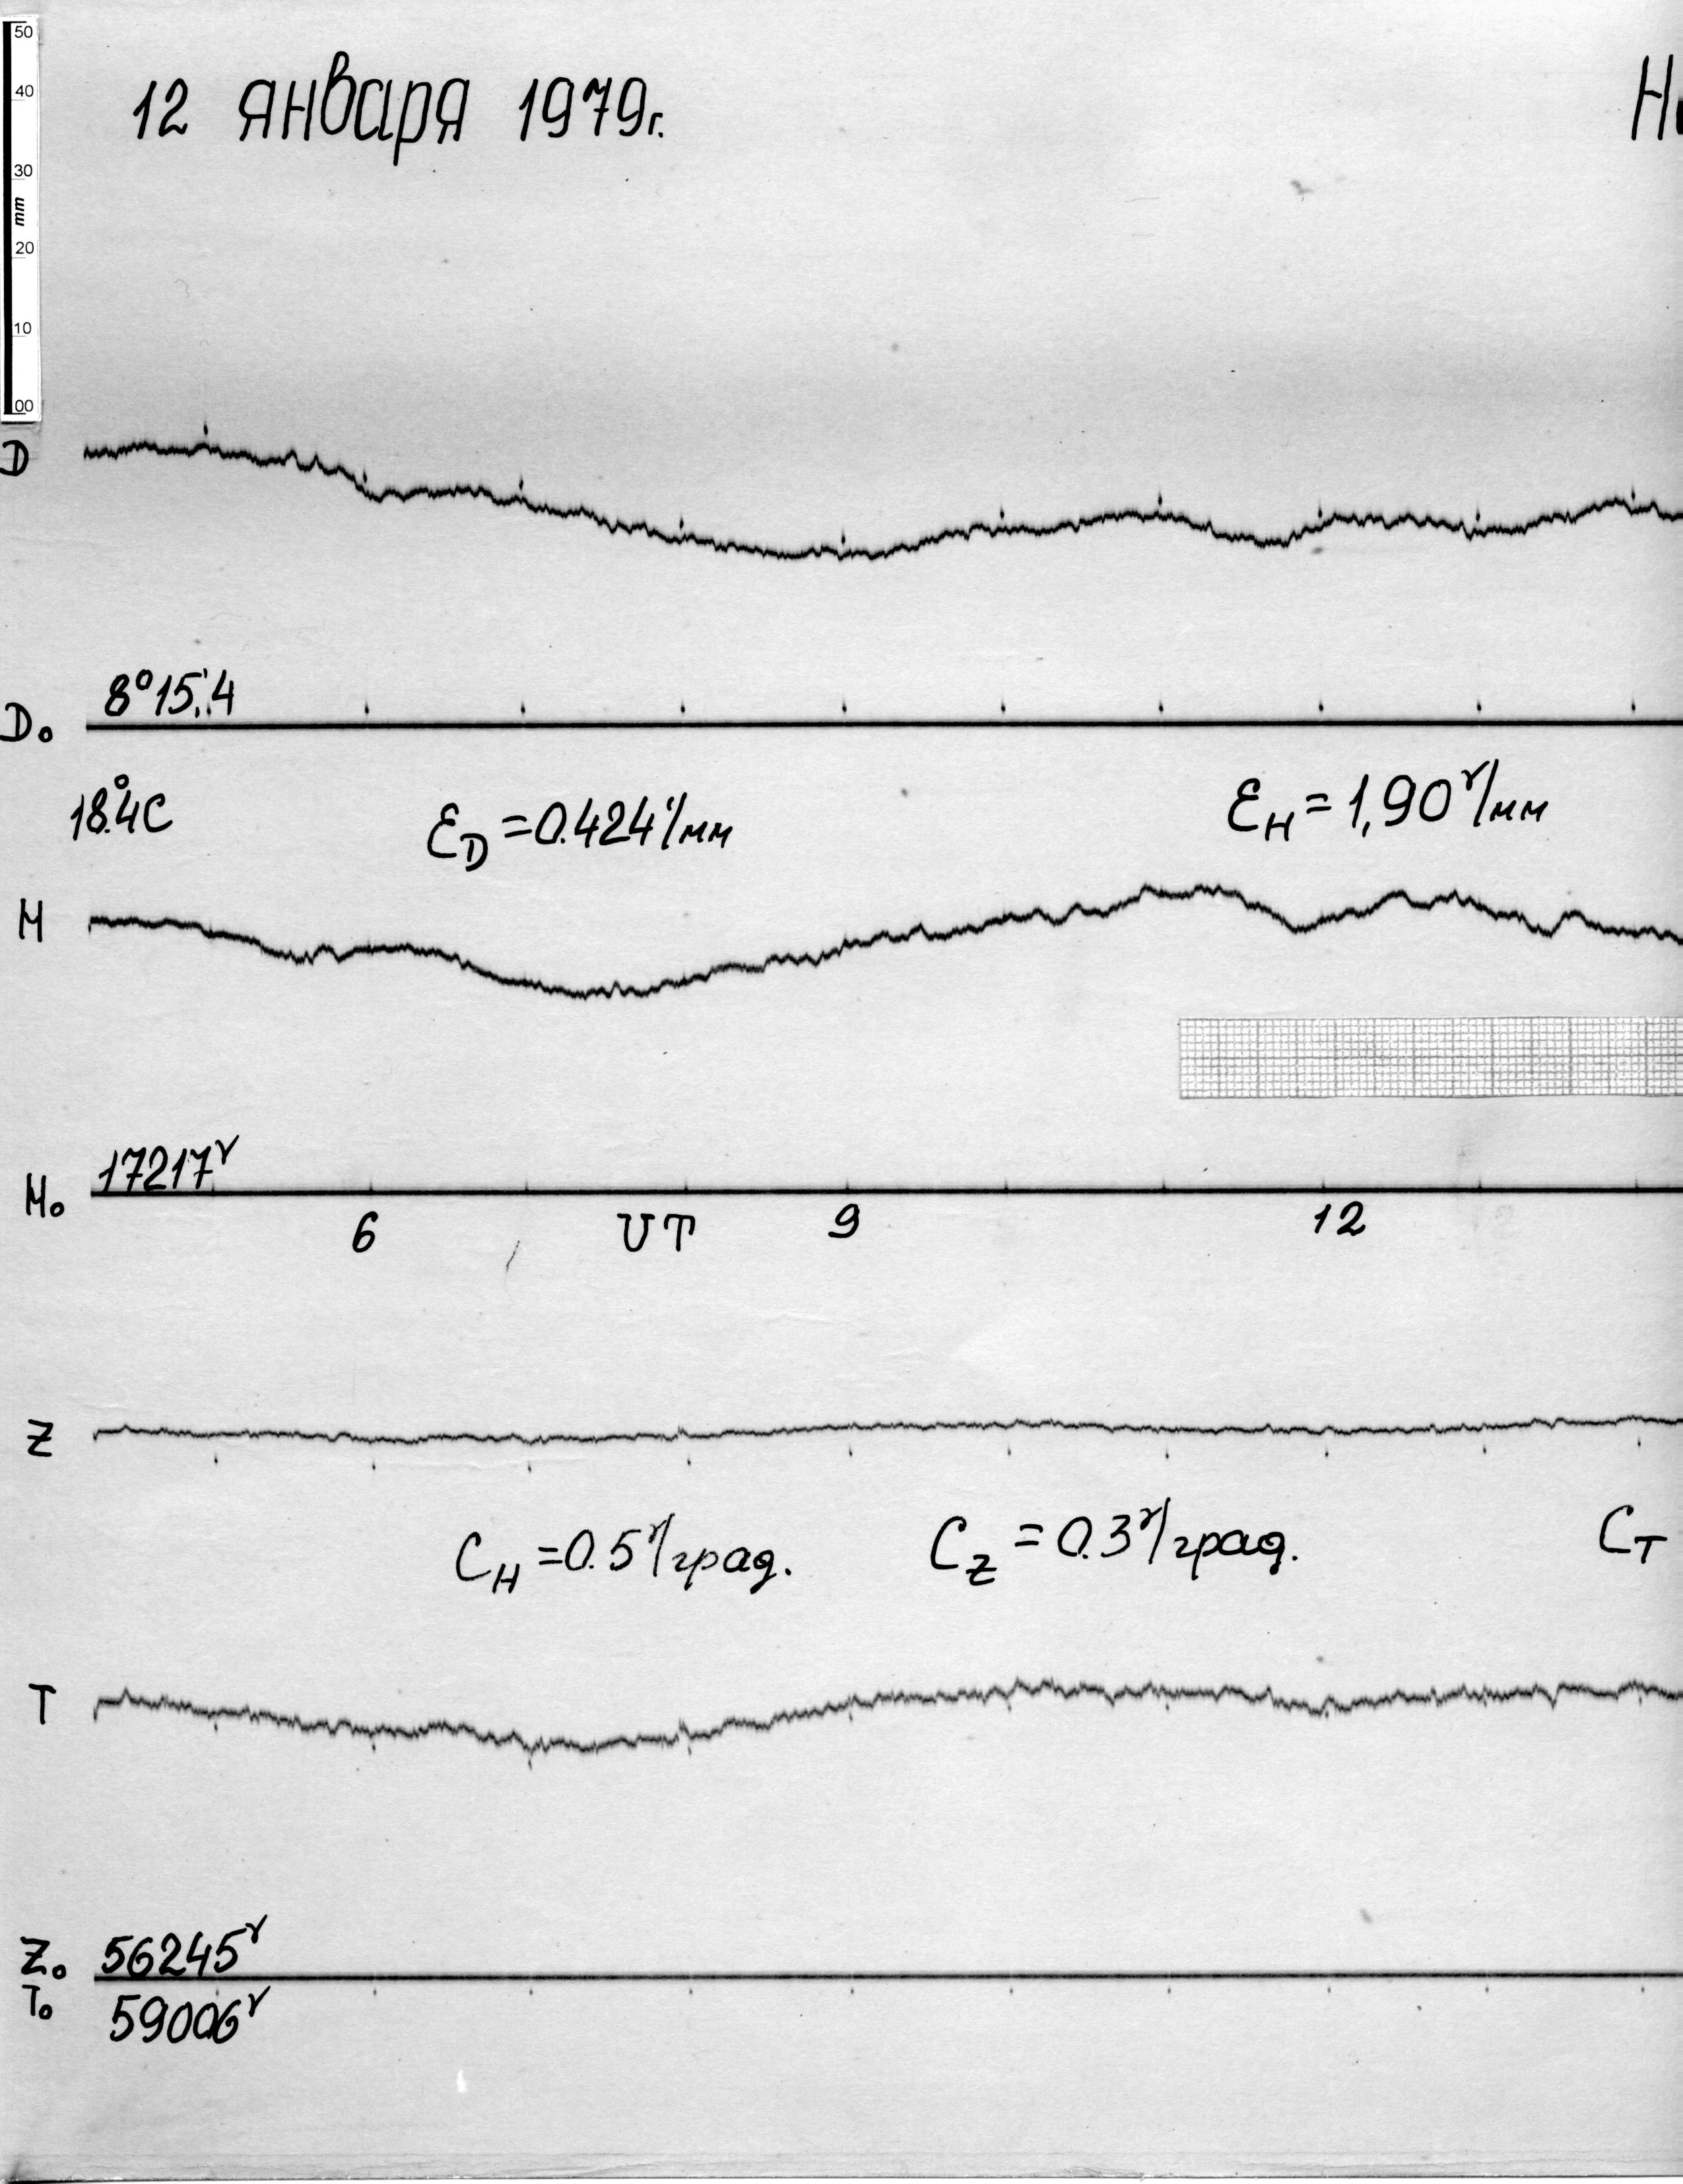 50
40
30
mm
20
10
00
12 января 1979г.
D
8°15.'4
D₀
18.°4C
Ɛ_D = 0.424'/мм
Ɛ_H = 1,90ᵞ/мм
H
17217ᵞ
H₀
6 UT 9 12
Z
C_H = 0.5ᵞ/град.
C_Z = 0.3ᵞ/град.
C_T
T
Z₀ 56245ᵞ
T₀ 59006ᵞ